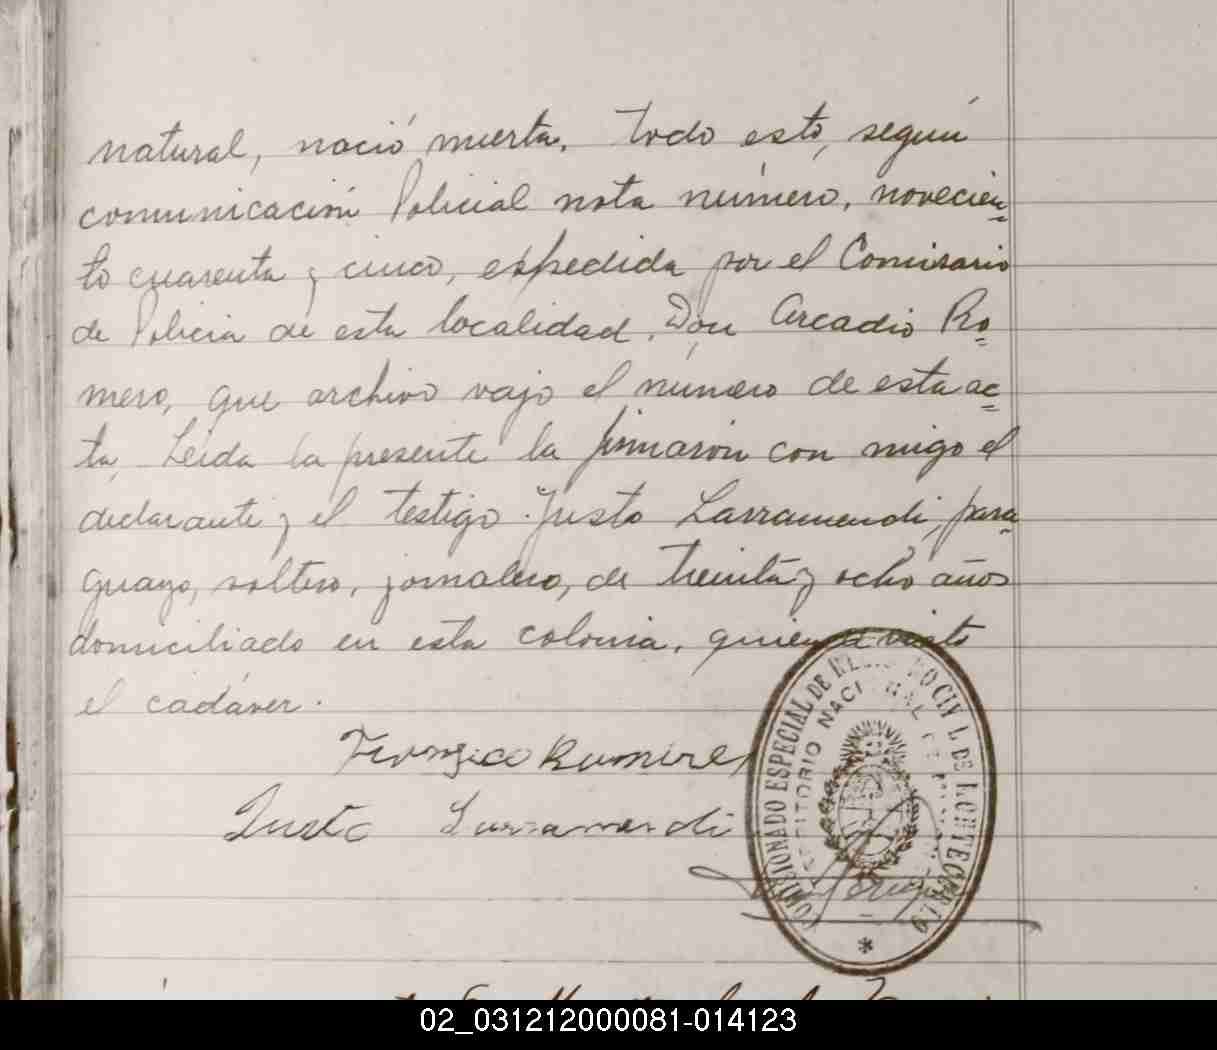 natural, nació muerta. Todo esto, según
comunicación Policial nota número, novecien=
to cuarenta y cinco, expedida por el Comisario
de Policia de esta localidad. Don Arcadio Ro=
mero, que archivo vajo el número de esta ac=
ta. Leida la presente la firmaron con migo el
declarante y el testigo Justo Larramendi, para=
guayo, soltero, jornalero, de treinta y ocho años
domiciliado en esta colonia, quien a visto
el cadáver.
Ramirez
Justo Larramendi
COMISIONADO ESPECIAL DE REGISTRO CIVIL DE MONTECARLO
TERRITORIO NACIONAL DE MISIONES
02_031212000081-014123